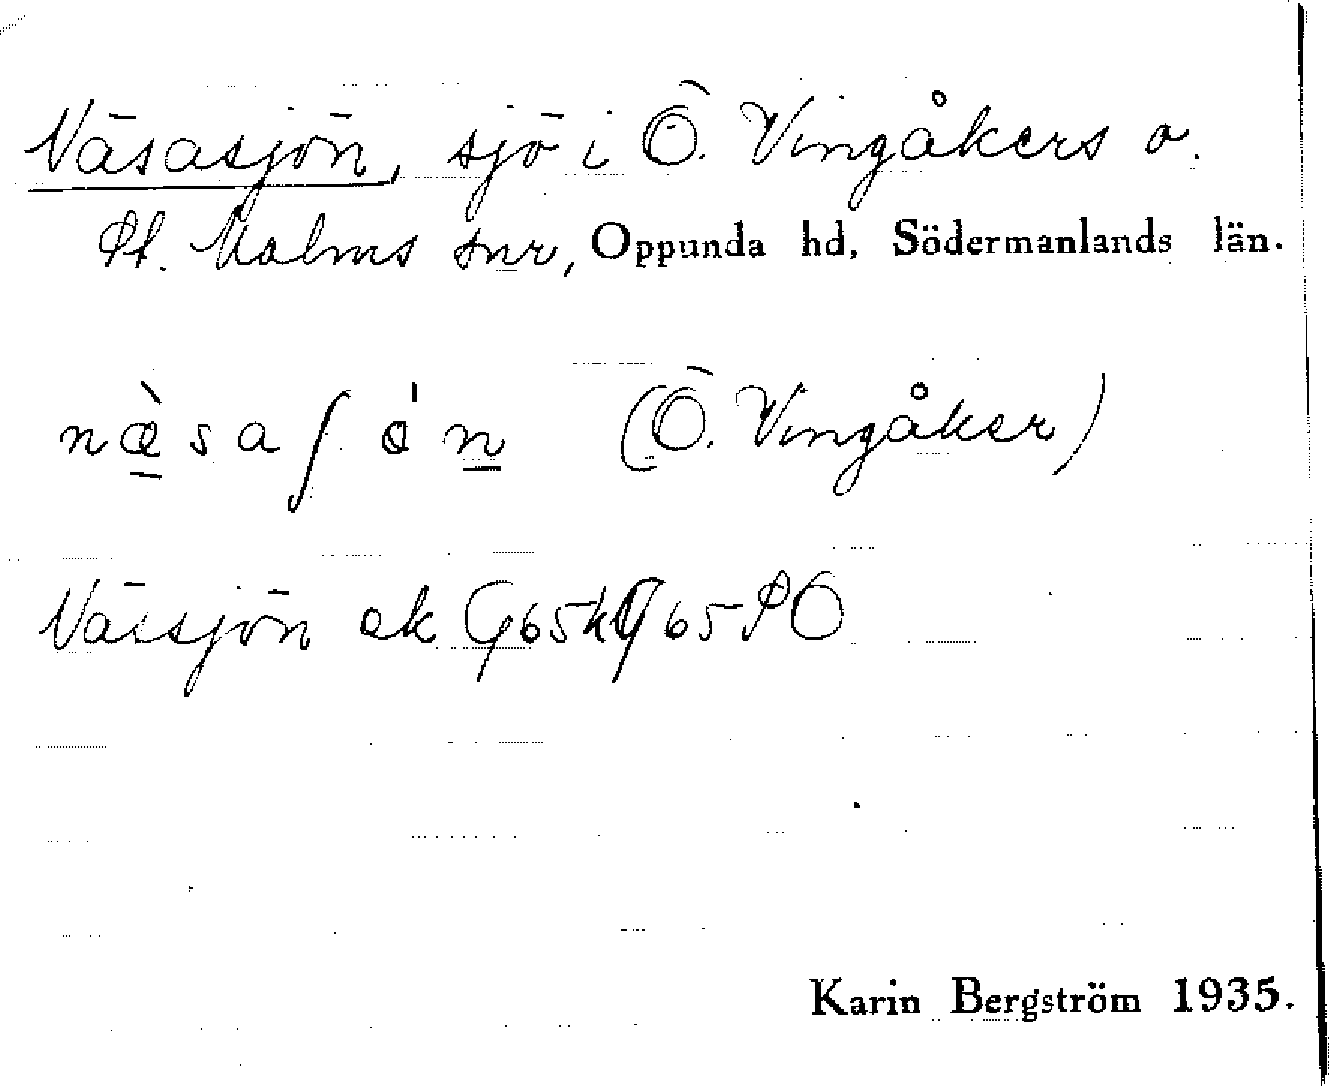 Näsasjön, sjö i Ö. Vingåkers o.
St. Malms snr, Oppunda hd, Södermanlands län.
næ̀saʃǿn (Ö. Vingåker)
Nässjön ek G65 G65 SO
Karin Bergström 1935.